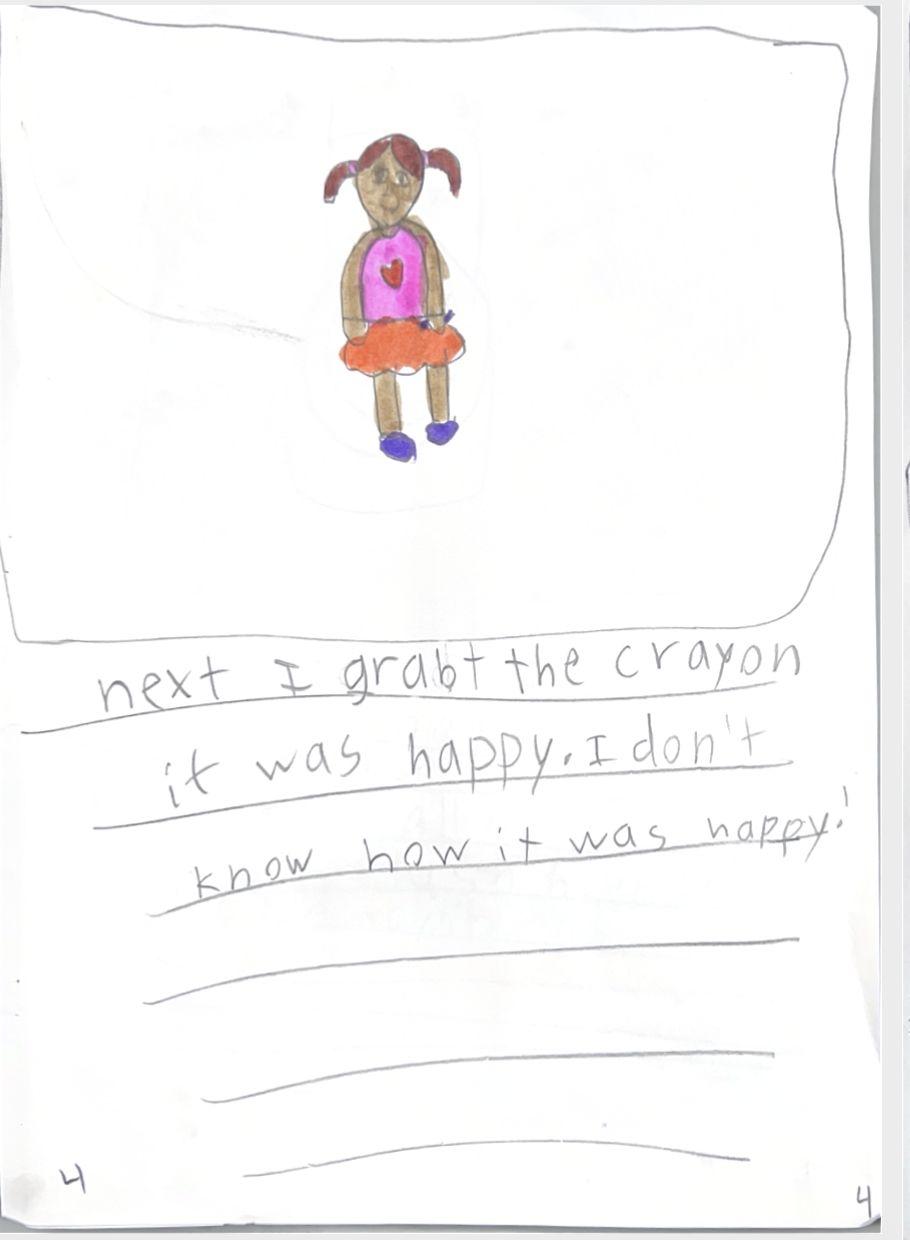 next I grabt the crayon
it was happy. I don't
know how it was happy!
4
4